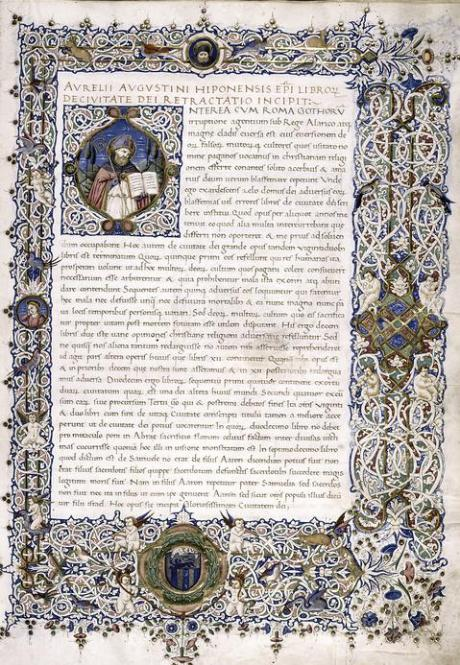 AVRELII AVGUSTINI HIPONENSIS EPI LIBROꝜ
DE CIVITATE DEI RETRACTATIO INCIPIT:
INTEREA CVM ROMA GOTHORŪ
irruptione agentium sub Rege Alarico atq;
magne cladis euersa est eius euersionem de
orꝝ falsorꝝ multorꝝ cultores quos usitato no
mine paganos uocamus in christianam religi
onem referre conantes solito acerbius &
deum uerum blasfemare ceperunt Vnde
ego exardescens zelo domus dei aduersus eorꝝ
blasfemias uel errores libros de ciuitate dei scri
bere institui. Quod opus per aliquot annos me
tenuit eo quod alia multa intercurrebant que
differri non oporteret & me prius ad soluen
dum occupabant. Hoc autem de ciuitate dei grande opus tandem uigintiduobꝰ
libris est terminatum. Quorum quinque primi eos refellunt qui res humanas ita
prosperari uolunt ut ad hoc multorꝝ deorꝝ cultum quos pagani colere consueuerūt
necessarium esse arbitrentur & quia prohibentur mala ista exoriri atq; abun
dare contendunt Sequentes autem quinq; aduersus eos loquuntur qui fatentur
hec mala nec defuisse unq; nec defutura mortalibꝰ & ea nunc magna nunc pa
ua locis temporibus personisq; uariari. Sed deorꝝ multorꝝ cultum quo eis sacrifica
tur propter uitam post mortem futuram esse utilem disputant. His ergo decem
libris due iste uane opiniones christiane religioni aduersarie refelluntur Sed
ne quisq; nos aliena tantum redarguisse non autem nostra asseruisse reprehenderet
id agit pars altera operis huius que libris XII continetur Quanq; ubi opus est
& in prioribꝰ decem que nostra sunt asseramus & in XII posterioribꝰ redargua
mus aduersa Duodecim ergo librorꝝ sequentium primi quatuor continent exortū
duarꝝ ciuitatum quarꝝ est una dei altera huius mundi Secundi quatuor excur
sum earꝝ siue procursum Tertii uero qui & postremi debitos fines Ita omnes uiginti
& duo libri cum sint de utraq; Ciuitate conscripti titulum tamen a meliore acce
perunt ut de ciuitate dei potius uocarentur In quorꝝ duodecimo libro non debet
pro miraculo poni in Abrae sacrificio flamam celitus factam inter diuisas uicti
mas cucurrisse quoniam hoc illi in uisione monstratum est In septimodecimo libro
quod dictum est de Samuele non erat de filiis Aaron dicendum potius fuit non
erat filius sacerdotis filios quippe sacerdotum defunctis sacerdotibꝰ succedere magis
legitimi moris fuit Nam in filiis Aaron repertur pater Samuelis sed sacerdos
non fuit nec ita in filiis ut eum ipse genuerit Aaron sed sicut omnes populi illius dicū
tur filii israel Hoc opus sic incipit Gloriosissimam Ciuitatem dei;